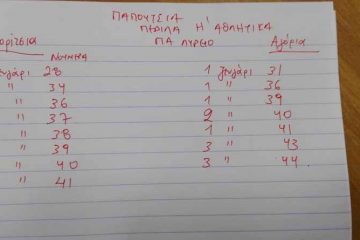 ΠΑΠΟΥΤΣΙΑ
ΠΕΔΙΛΑ Η' ΑΘΛΗΤΙΚΑ
ΓΙΑ ΛΥΡΕΙΟ
ΟΡΙΤΣΙΑ ΝΟΥΜΕΡΑ Αγόρια
ευγάρι 28 1 ζευγάρι 31
" 34 1 " 36
" 36 1 " 39
" 37 2 " 40
" 38 1 " 41
" 39 3 " 43
" 40 3 " 44
" 41